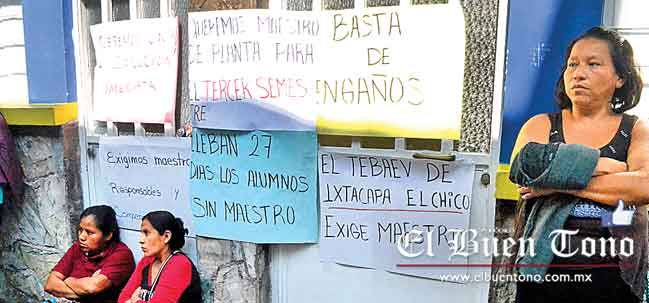 SOLUCIÓN
INMEDIATA
QUEREMOS MAESTRO
DE PLANTA PARA
EL TERCER SEMES
TRE
BASTA
DE
ENGAÑOS
Exigimos maestros
Responsables y
LLEBAN 27
DIAS LOS ALUMNOS
SIN MAESTRO
EL TEBAEV DE
IXTACAPA EL CHICO
EXIGE MAESTRO
El Buen Tono
www.elbuentono.com.mx